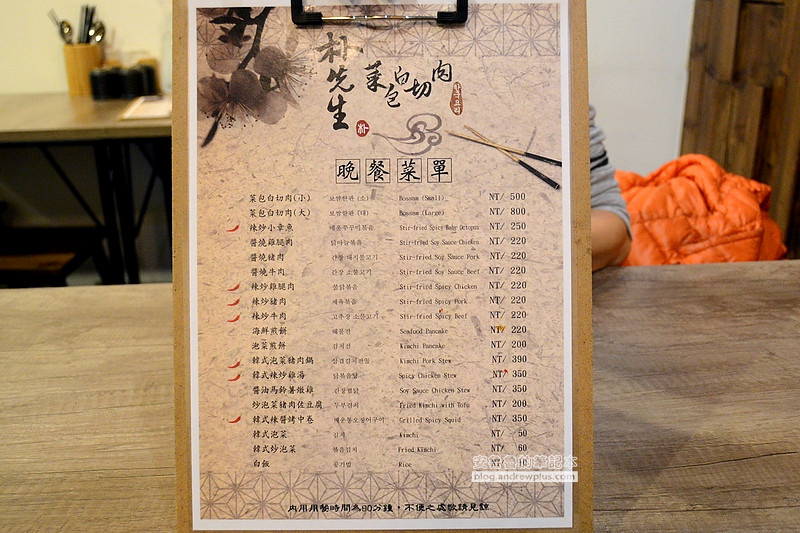 朴先生
菜包白切肉
한국요리
朴
晚餐菜單
菜包白切肉(小) 보쌈한판 (소) Bossam (Small) NT/ 500
菜包白切肉(大) 보쌈한판 (대) Bossam (Large) NT/ 800
辣炒小章魚 매콤쭈꾸미볶음 Stir-fried Spicy Baby Octopus NT/ 250
醬燒雞腿肉 닭마늘볶음 Stir-fried Soy Sauce Chicken NT/ 220
醬燒豬肉 간장 돼지불고기 Stir-fried Soy Sauce Pork NT/ 220
醬燒牛肉 간장 소불고기 Stir-fried Soy Sauce Beef NT/ 220
辣炒雞腿肉 불닭볶음 Stir-fried Spicy Chicken NT/ 220
辣炒豬肉 제육볶음 Stir-fried Spicy Pork NT/ 220
辣炒牛肉 고추장 소불고기 Stir-fried Spicy Beef NT/ 220
海鮮煎餅 해물전 Seafood Pancake NT/ 220
泡菜煎餅 김치전 Kimchi Pancake NT/ 200
韓式泡菜豬肉鍋 Kimchi Pork Stew NT/ 390
韓式辣炒雞湯 닭볶음탕 Spicy Chicken Stew NT/ 350
醬油馬鈴薯燉雞 간장찜닭 Soy Sauce Chicken Stew NT/ 350
炒泡菜豬肉佐豆腐 두부김치 Fried Kimchi with Tofu NT/ 200
韓式辣醬烤中卷 매운통오징어구이 Grilled Spicy Squid NT/ 350
韓式泡菜 김치 Kimchi NT/ 50
韓式炒泡菜 볶음김치 Fried Kimchi NT/ 60
白飯 공기밥 Rice NT/ 10
內用用餐時間為80分鐘，不便之處敬請見諒
安德魯的筆記本
blog.andrewplus.com